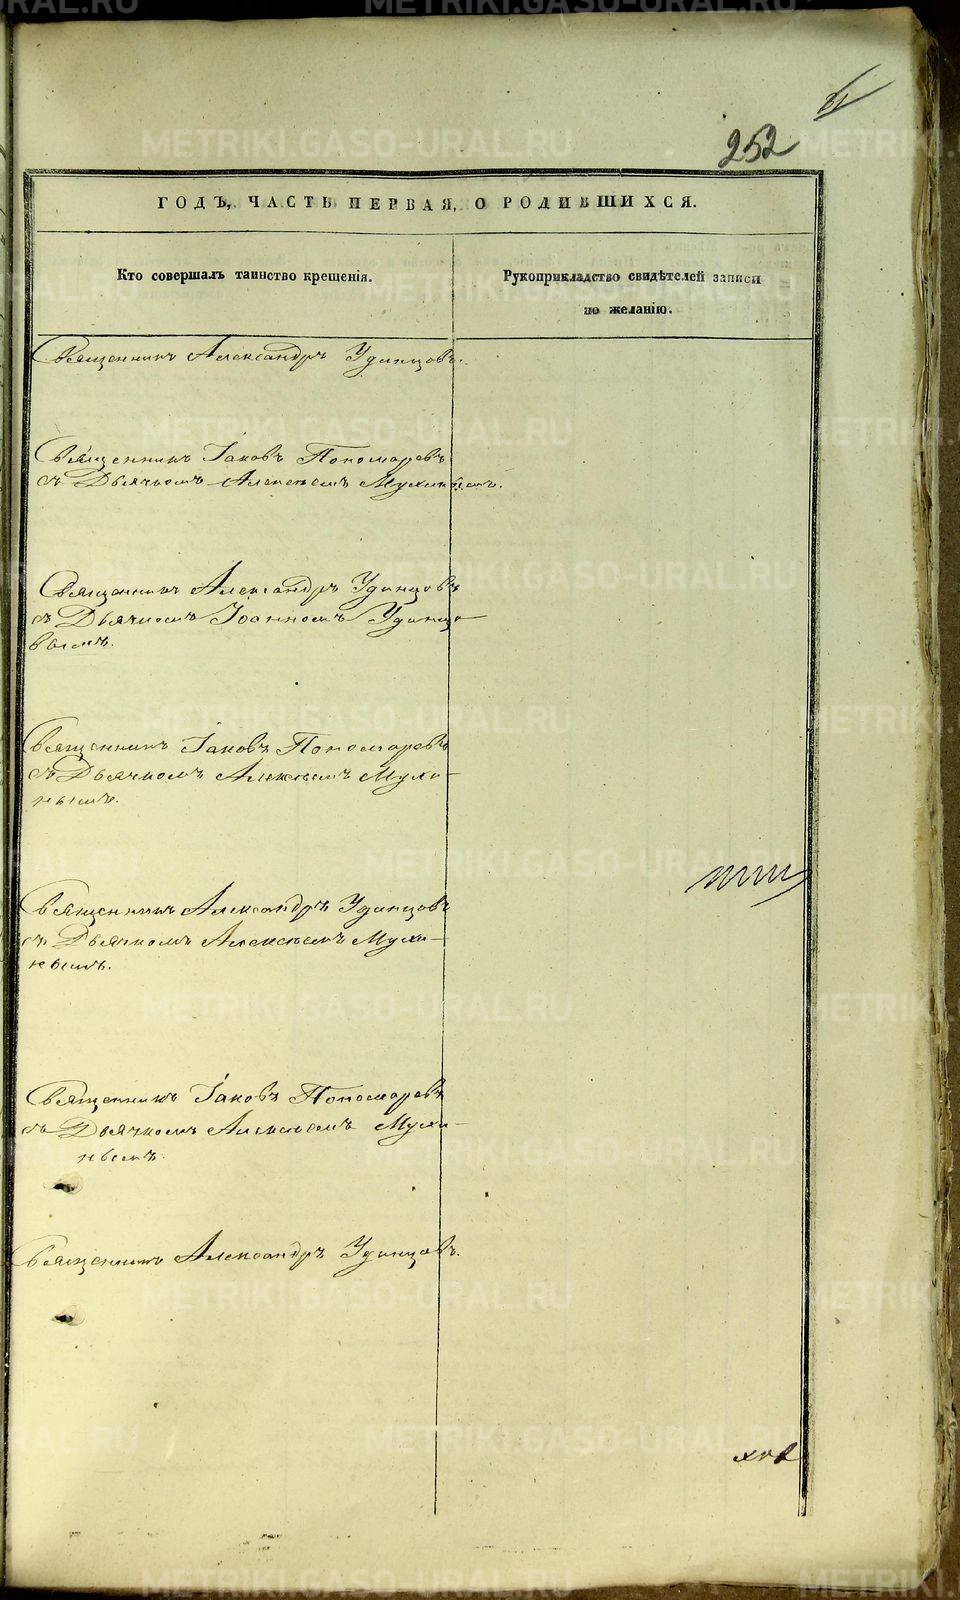 252
ГОДЪ, ЧАСТЬ ПЕРВАЯ, О РОДИВШИХСЯ.
Кто совершалъ таинство крещенія.
Рукоприкладство свидѣтелей записи
по желанію.
Священникъ Александръ Удинцовъ.
Священникъ Іаковъ Пономаревъ
съ Дьячкомъ Алексѣемъ Мухинымъ.
Священникъ Александръ Удинцовъ
съ Дьячкомъ Іоанномъ Удинцо-
вымъ.
Священникъ Іаковъ Пономаревъ
съ Дьячкомъ Алексѣемъ Мухи-
нымъ.
Священникъ Александръ Удинцовъ
съ Дьячкомъ Алексѣемъ Мухи-
нымъ.
Священникъ Іаковъ Пономаревъ
съ Дьячкомъ Алексѣемъ Мухи-
нымъ.
Священникъ Александръ Удинцовъ.
METRIKI.GASO-URAL.RU